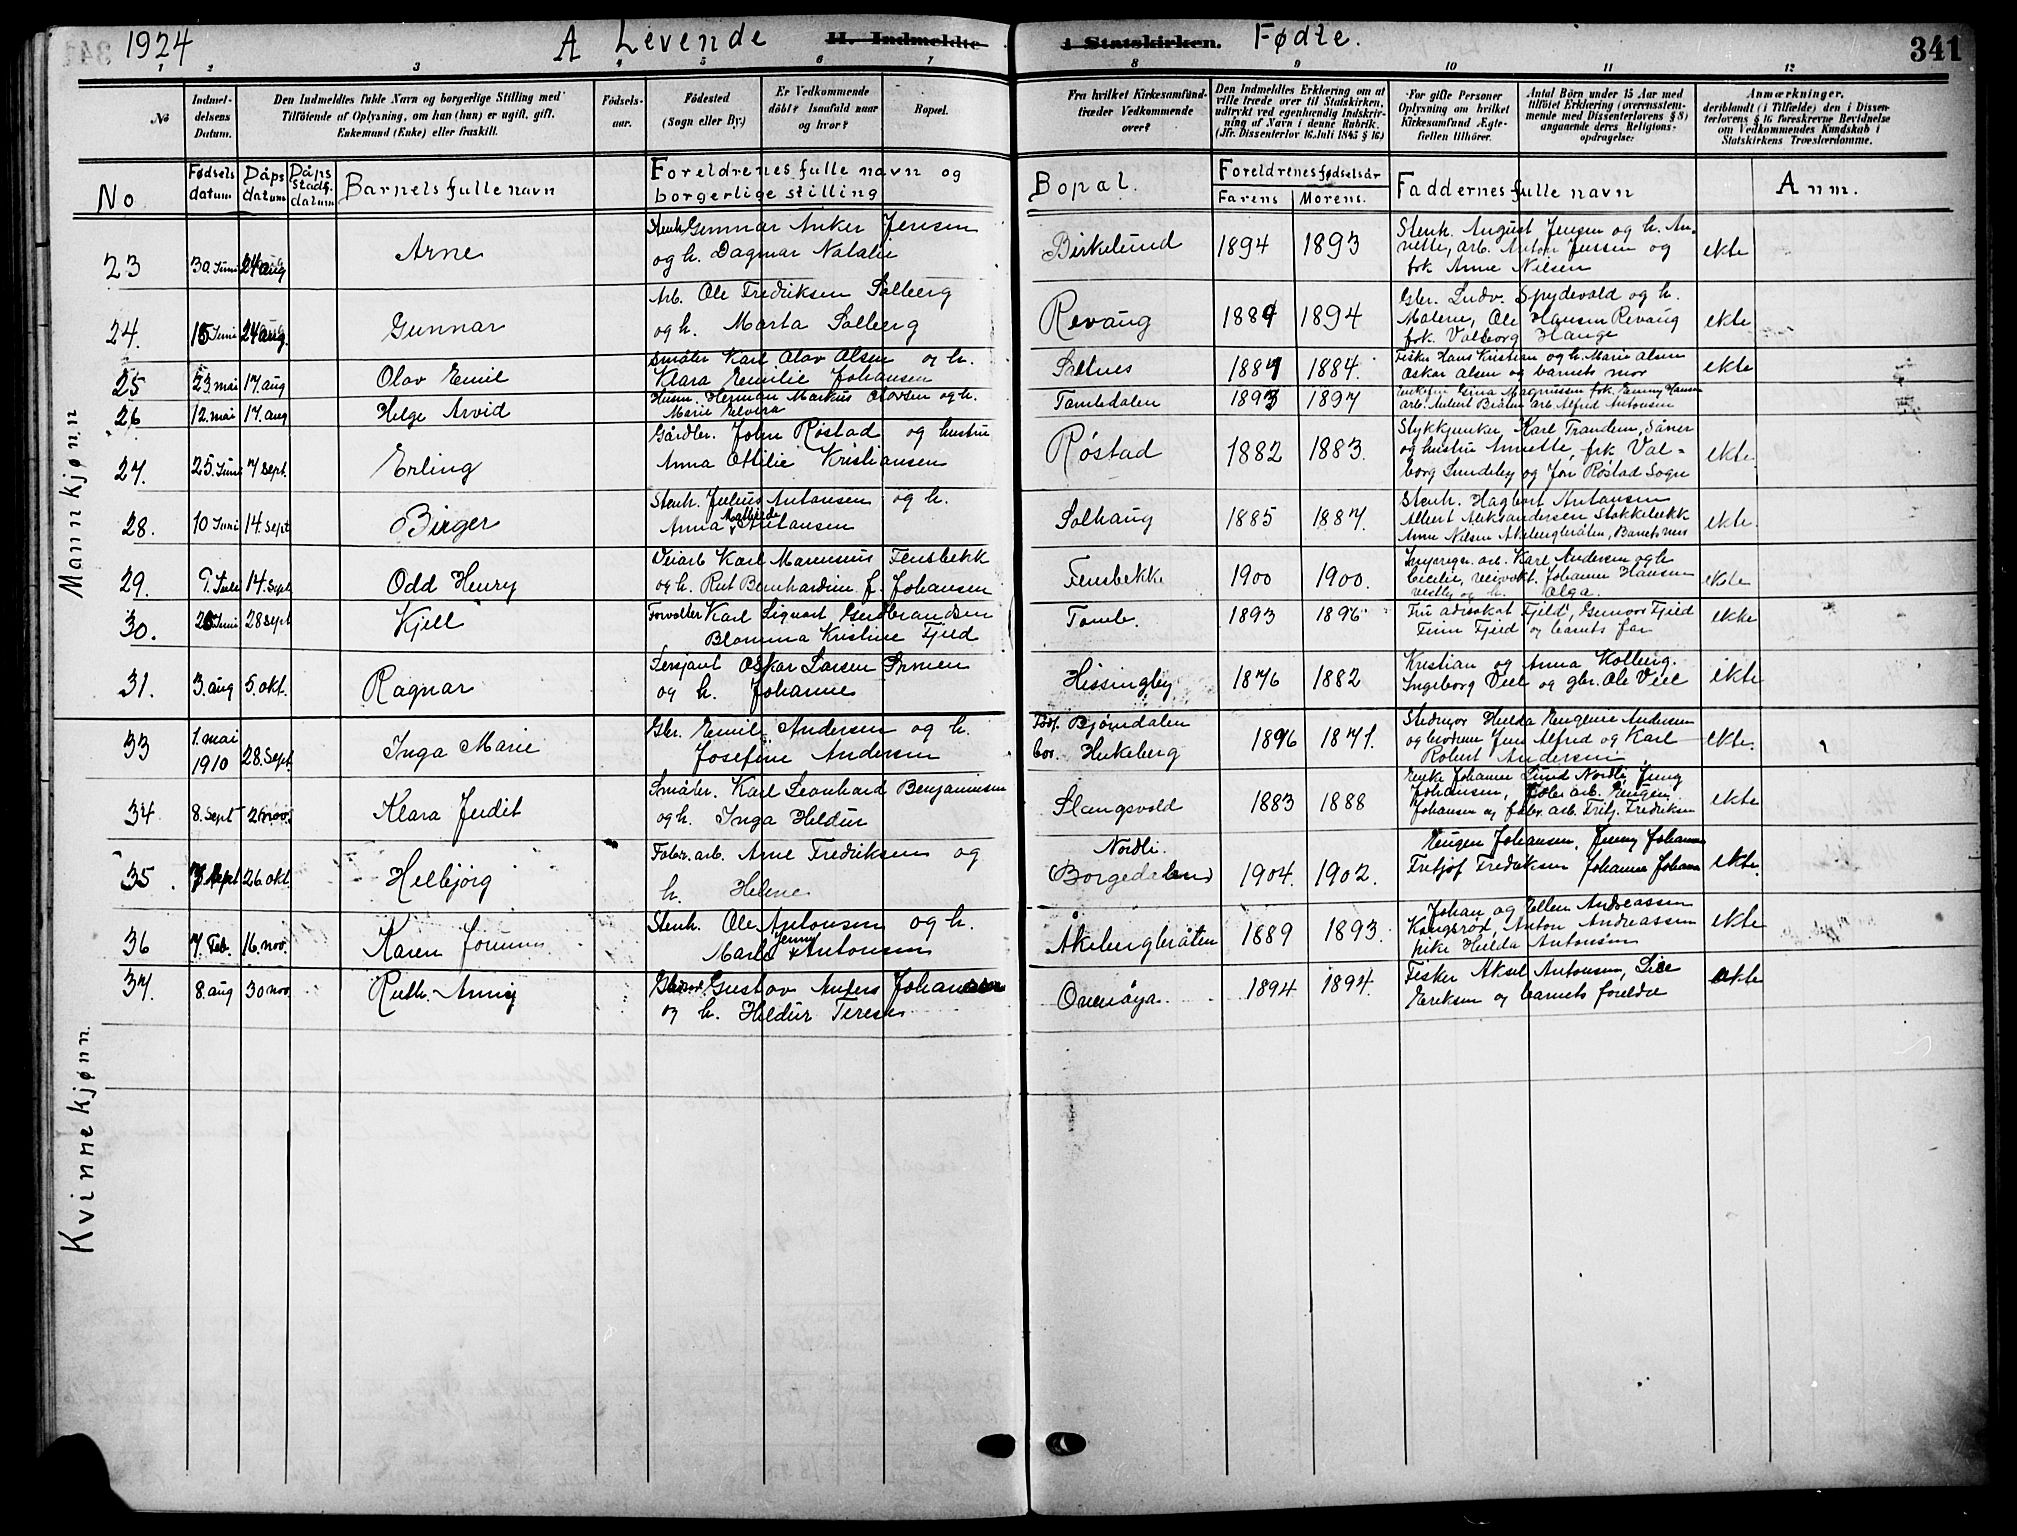 1924 A Levende H. Indmeldte i Statskirken. Fødte. 341
1 2 3 4 5 6 7 8 9 10 11 12
No
Indmeldelsens Datum.
Den Indmeldtes fulde Navn og borgerlige Stilling med Tilföiende af Oplysning, om han (hun) er ugift, gift, Enkemand (Enke) eller fraskilt.
Födselsaar.
Födested (Sogn eller By.)
Er Vedkommende döbt? Isaafald naar og hvor?
Bopæl.
Fra hvilket Kirkesamfund træder Vedkommende over?
Den Indmeldtes Erklæring om at ville træde over til Statskirken, udtrykt ved egenhændig Indskrivning af Navn i denne Rubrik. (Jfr. Dissenterlov 16 Juli 1845 § 16)
For gifte Personer Oplysning om hvilket Kirkesamfund Ægtefællen tilhörer.
Antal Börn under 15 Aar med tilföiet Erklæring (overensstemmende med Dissenterlovens § 8) angaaende deres Religionsopdragelse:
Anmærkninger, deriblandt (i Tilfælde) den i Dissenterlovens § 16 foreskrevne Bevidnelse om Vedkommendes Kundskab i Statskirkens Troeslærdomme.
No
Fødselsdatum
Dåpsdatum
Dåps stadf. datum
Barnets fulle navn
Foreldrenes fulle navn og borgerlige stilling
Bopal.
Foreldrenes fødselsår
Farens Morens.
Faddernes fulle navn
Anm.
Mannkjønn
23 30 Juni 24 aug Arne Stenh. Gunnar Anker Jensen
og h. Dagmar Natalie Birkelund 1894 1893 Stenh. August Jensen og h. An-
nette, arb. Anton Jensen og
frk Anne Nilsen ekte
24. 15 Juni 24 aug. Gunnar Arb. Ole Fredriksen Solberg
og h. Marta Solberg Revaug 1889 1894 Gbr. Ludv. Spydevold og h.
Malene, Ole Hansen Revaug
frk. Valborg Hauge ekte
25 23 mai 17. aug Olav Emil Småbr Karl Olav Olsen og h.
Klara Emilie Johansen Saltnes 1884. Fisker Hans Kristian og h. Marie Olsen
Oskar Olsen og barnets mor ekte
26 12. mai 17. aug Helge Arvid Husm. Herman Markus Olavsen og h.
Marie Elvira Tombdalen 1893 1897 Enkefru Gina Magnussen frk. Jenny Hansen
arb. Anbert Bråten arb. Alfred Antonsen
27. 25. Juni 7 sept. Erling Gårdbr. John Røstad og hustru
Anna Ottilie Kristiansen Røstad 1882 1883. Stykkjunker Karl Trandem, Såner
og hustru Annette, frk Val-
borg Sundeby og Jon Røstad Sogn ekte
28. 10 Juni 14. sept Birger Stenh. Julius Antonsen og h.
Anna Mathilde Antonsen Solhaug 1885 1887. Stenh. Hagbart Antonsen
Albert Aleksandersen Stokkebekk
Anne Nilsen Akebergbråten, Barnets mor ekte.
29. 9. Juli 14. Sept Odd Henry Veiarb Karl Mammus Fensbekk
og h. Rut Bernhardine f. Johansen Fembekke 1900 1900. Karl Andersen og h
Cecilie, veivokt. Johanne Hansen
Vestby og h. Olga. ekte
30. 28 sept Kjell Forvalter Karl Sigvart Gudbrandsen
Blomma Kristine Fjeld Tomb. 1893 1896 Fru advokat Fjeld, Gunvor Fjeld
Finn Fjeld og barnets far ekte
31. 3. aug 5. okt. Ragnar Sersjant Oskar Larsen
og h. Johanne Hissingby 1876 1882 Kristian og Anna Kolberg.
Ingeborg Veel og gbr. Ole Veel ekte
Kvinnekjønn.
33 1. mai
1910 28. Sept. Inga Marie Gbr. Emil Andersen og h.
Josefine Andersen Født. Bjørndalen
bor. Hukeberg 1896 1871. Stedmor Hulda Eugenie Andersen
og brødrene Jens Alfred og Karl
Robert Andersen ekte.
34 8. Sept 2 nov. Klara Judit Småbr. Karl Leonhard Benjaminsen
og h. Inga Heldur Slangsvold 1883 1888 Enke Johanne Lund Nordli, Jenny
Johansen, Fabr. arb. Eugen
Johansen og fabr. arb. Fritj. Fredriksen ekte
35. 7. Sept 26. okt. Helbjörg Fabr. arb. Arne Fredriksen og
h. Helene Nordli.
Borgedalen 1904. 1902. Eugen Johansen, Jenny Johansen
Fritjof Fredriksen Johanne Johansen ekte.
36 7. Feb. 16. nov. Karen Jorunn Stenh. Ole Antonsen og h.
Marla Jenny Antonsen Åkebergbråten 1889 1893. Johan og Ellen Andreassen
Kongsrød, Anton Andreassen
pike Hulda Antonsen ekte
37. 8. aug 30 nov Ruth Annie Gustav Anders Johansen
og h. Heldur Terese Ovenøya. 1894 1894. Fisker Aksel Antonsen, Lise
Eriksen og barnets foreldre ekte